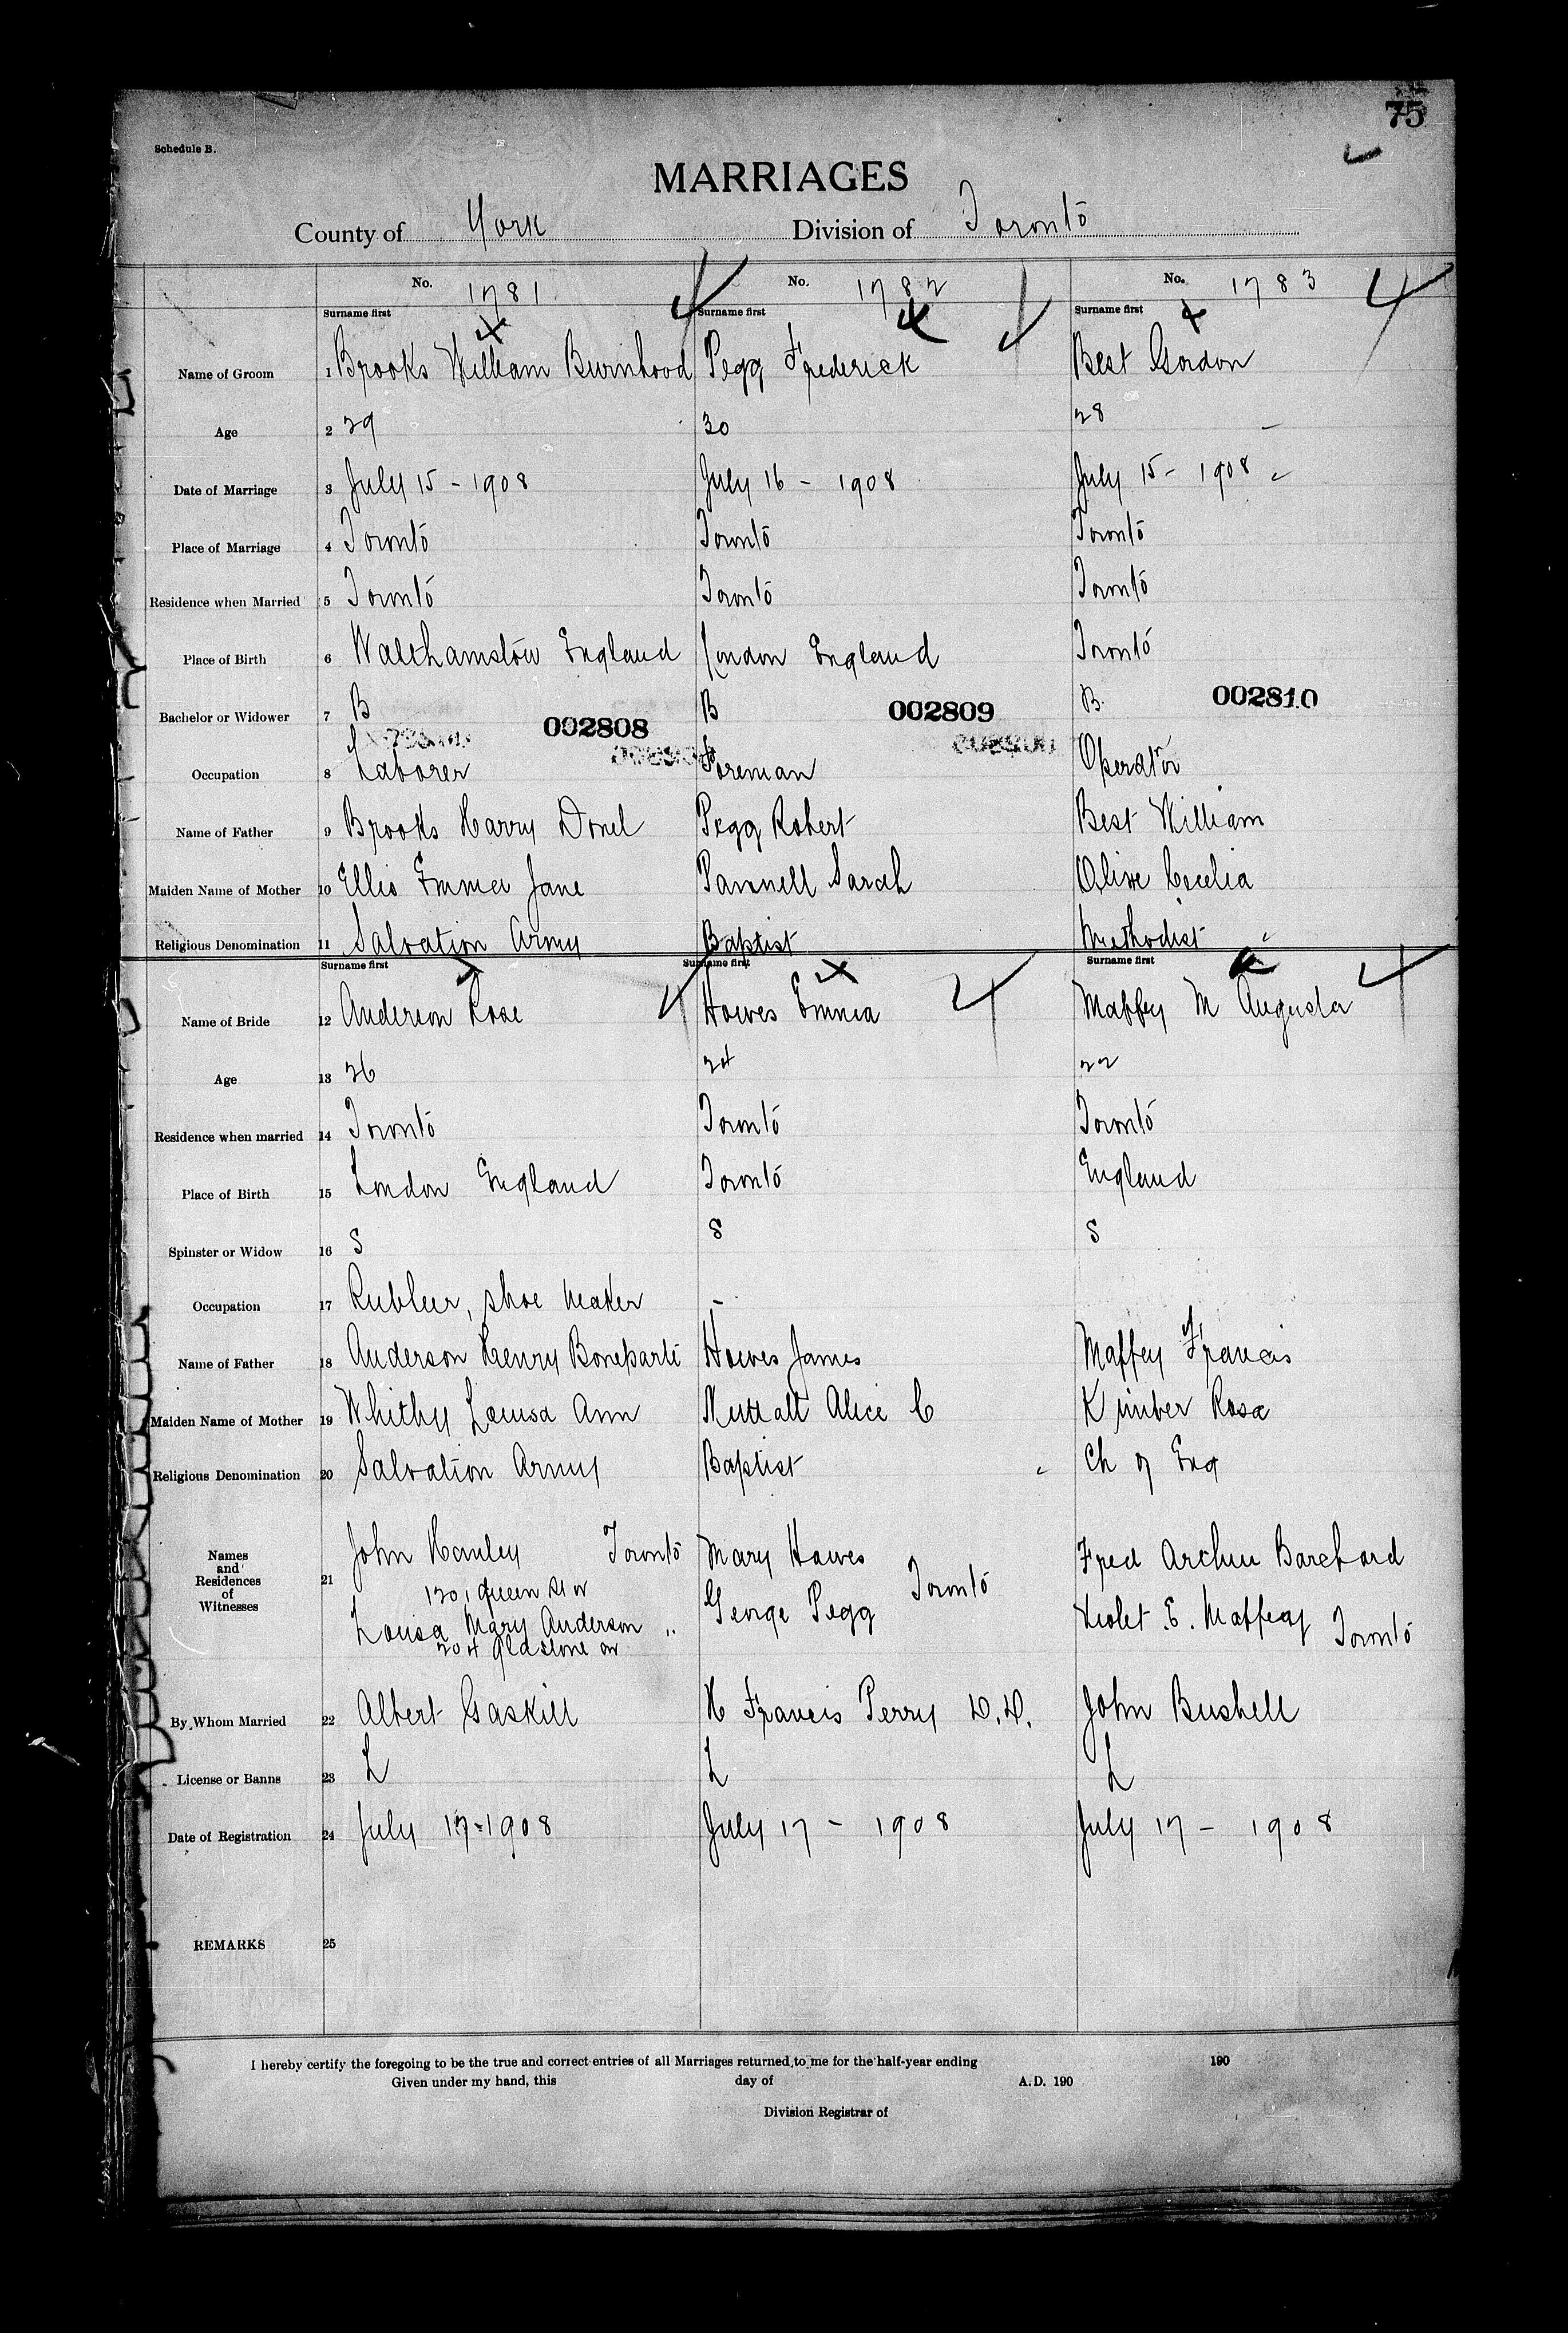 75
Schedule B.
MARRIAGES
County of York Division of Toronto
No. 1781 No. 1782 No. 1783
Surname first Surname first Surname first
Name of Groom 1 Brooks William Burnhood Pegg Frederick Best Gordon
Age 2 29 30 28
Date of Marriage 3 July 15 - 1908 July 16 - 1908 July 15 - 1908
Place of Marriage 4 Toronto Toronto Toronto
Residence when Married 5 Toronto Toronto Toronto
Place of Birth 6 Walthamstow England London England Toronto
Bachelor or Widower 7 B B B.
002808 002809 002810
Occupation 8 Laborer Foreman Operator
Name of Father 9 Brooks Harry Pegg Robert Best William
Maiden Name of Mother 10 Ellis Emma Jane Pannell Sarah Olive Cecelia
Religious Denomination 11 Salvation Army Baptist Methodist
Surname first Surname first Surname first
Name of Bride 12 Anderson Rose Howes Emma Maffey M Augusta
Age 13 26 24 22
Residence when married 14 Toronto Toronto Toronto
Place of Birth 15 London England Toronto England
Spinster or Widow 16 S S S
Occupation 17 Rubber, shoe maker -
Name of Father 18 Anderson Henry Boneparte Howes James Maffey Francis
Maiden Name of Mother 19 Whithy Louisa Ann Nuttall Alice C Kimber Rosa
Religious Denomination 20 Salvation Army Baptist Ch of Eng
Names and Residences of Witnesses 21
John Hanley Toronto Mary Howes Fred Archer Barchard
1201 Queen St W George Pegg Toronto Violet E. Maffey Toronto
Louisa Mary Anderson "
204 Gladstone av
By Whom Married 22 Albert Gaskill H Francis Perry D.D. John Bushell
License or Banns 23 L L L
Date of Registration 24 July 17-1908 July 17 - 1908 July 17 - 1908
REMARKS 25
I hereby certify the foregoing to be the true and correct entries of all Marriages returned to me for the half-year ending 190
Given under my hand, this day of A.D. 190
Division Registrar of